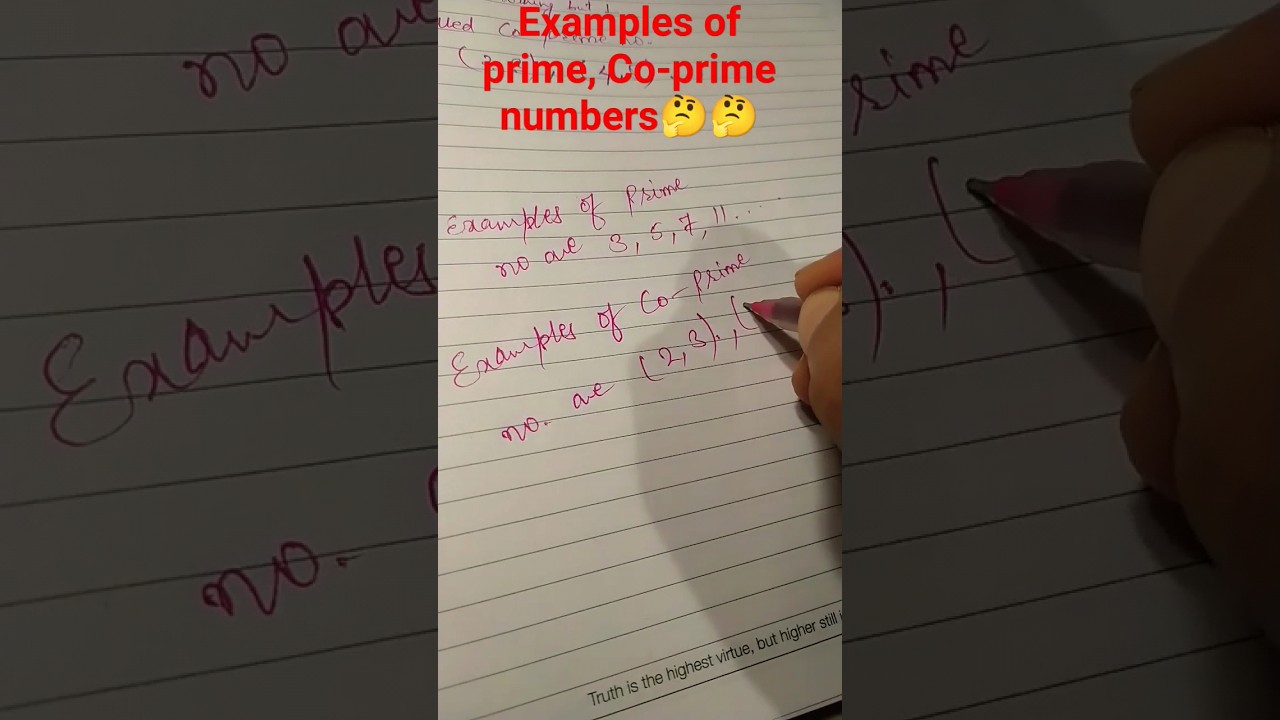 Examples of
prime, Co-prime
numbers🤔🤔
Examples of Prime
no are 3, 5, 7, 11.....
Examples of Co-prime
no. are (2,3).,(
Truth is the highest virtue, but higher still i